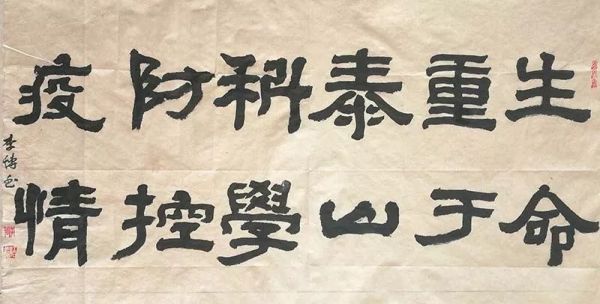 生命
重于
泰山
科學
防控
疫情
李